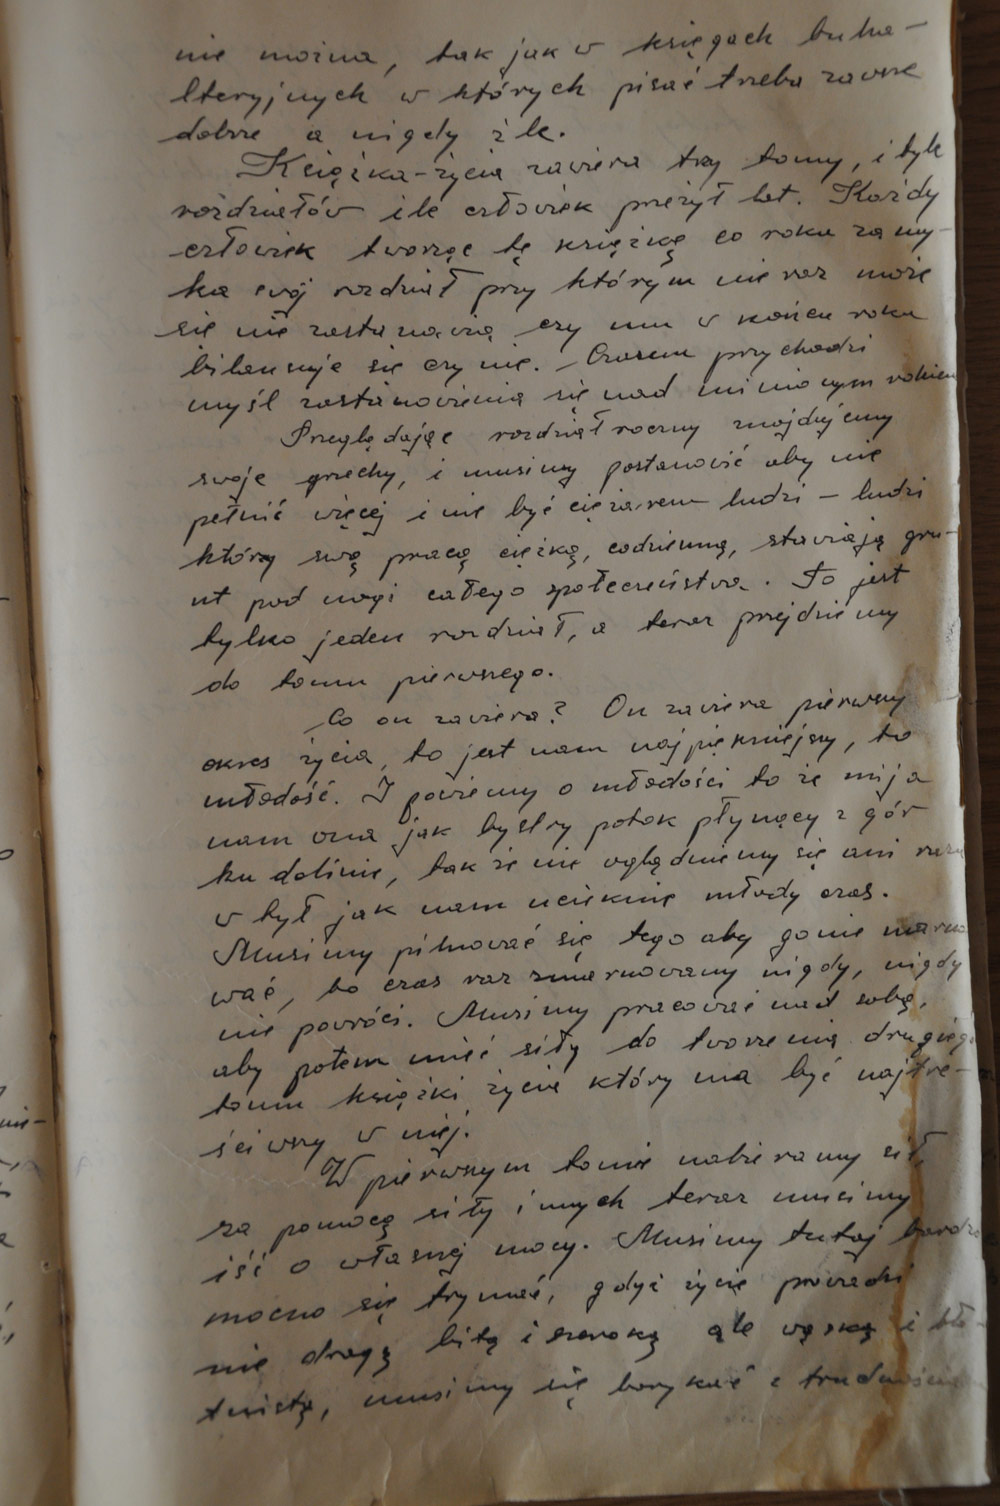 nie można, tak jak w księgach buha-
lteryjnych w których pisać trzeba zawsze
dobrze a nigdy źle.
Książka-życia zawiera trzy tomy, i tyle
rozdziałów ile człowiek przeżył lat. Każdy
człowiek tworząc tę książkę co roku zamy-
ka swój rozdział przy którym nie raz może
się nie zastanawia czy mu w końcu roku
bilansuje się czy nie. Czasem przychodzi
myśl zastanowienia się nad minionym rokiem
Przeglądając rozdział roczny znajdujemy
swoje grzechy, i musimy postanowić aby nie
pełnić więcej i nie być ciężarem ludzi – ludzi
którzy swą pracą ciężką, codzienną, stawiają gru-
nt pod nogi całego społeczeństwa. To jest
tylko jeden rozdział, a teraz przejdziemy
do tomu pierwszego.
Co on zawiera? On zawiera pierwszy
okres życia, to jest nam najpiękniejszy, to
młodość. I powiemy o młodości to że mija
nam ona jak bystry potok płynący z gór
ku dolinie, tak że nie oglądniemy się ani razu
w tył jak nam ucieknie młody czas.
Musimy pilnować się tego aby go nie marno
wać, bo czas raz zmarnowany nigdy, nigdy
nie powróci. Musimy pracować nad sobą,
aby potem mieć siły do tworzenia drugiego
tomu książki życia który ma być najtre-
ściwszy w niej.
W pierwszym tomie nabieramy sił,
za pomocą siły innych teraz musimy
iść o własnej mocy. Musimy tutaj bardzo
mocno się trzymać, gdyż życie prowadzi
nie drogą bitą i szeroką ale wąską i bło-
tnistą, musimy się borykać z trudnościami